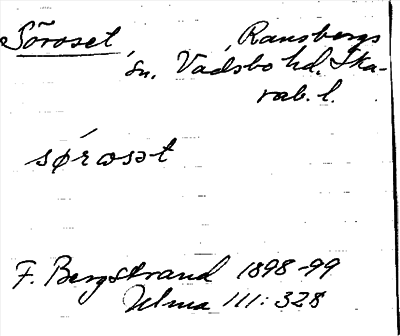 Söroset, Ransbergs
sn. Vadsbo hd. Ska-
rab. l.
sǿrosət
F. Bergstrand 1898-99
Ulma 111:328